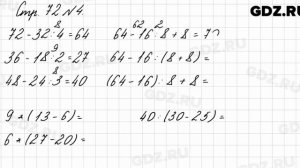 GDZ.RU
Стр. 72 № 4.
8
72 - 32 : 4 = 64
62 2
64 - 16 : 8 + 8 = 7
9
36 - 18 : 2 = 27
64 - 16 : (8 + 8) =
8
48 - 24 : 3 = 40
(64 - 16) : 8 + 8 =
9 * (13 - 6) =
40 : (30 - 25) =
6 * (27 - 20) =
GDZ.RU